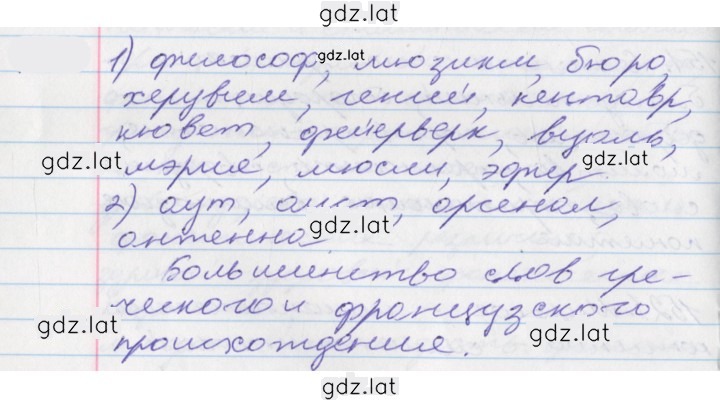 gdz.lat
1) философ, мюзикл, бюро,
gdz.lat
херувим, гений, кентавр,
кювет, фейерверк, вуаль,
gdz.lat
gdz.lat
мэрия, мюсли, эфер
2) аут, аист, арсенал,
gdz.lat
антенна.
Большинство слов гре-
ческого и французского
gdz.lat
gdz.lat
происхождения.
gdz.lat